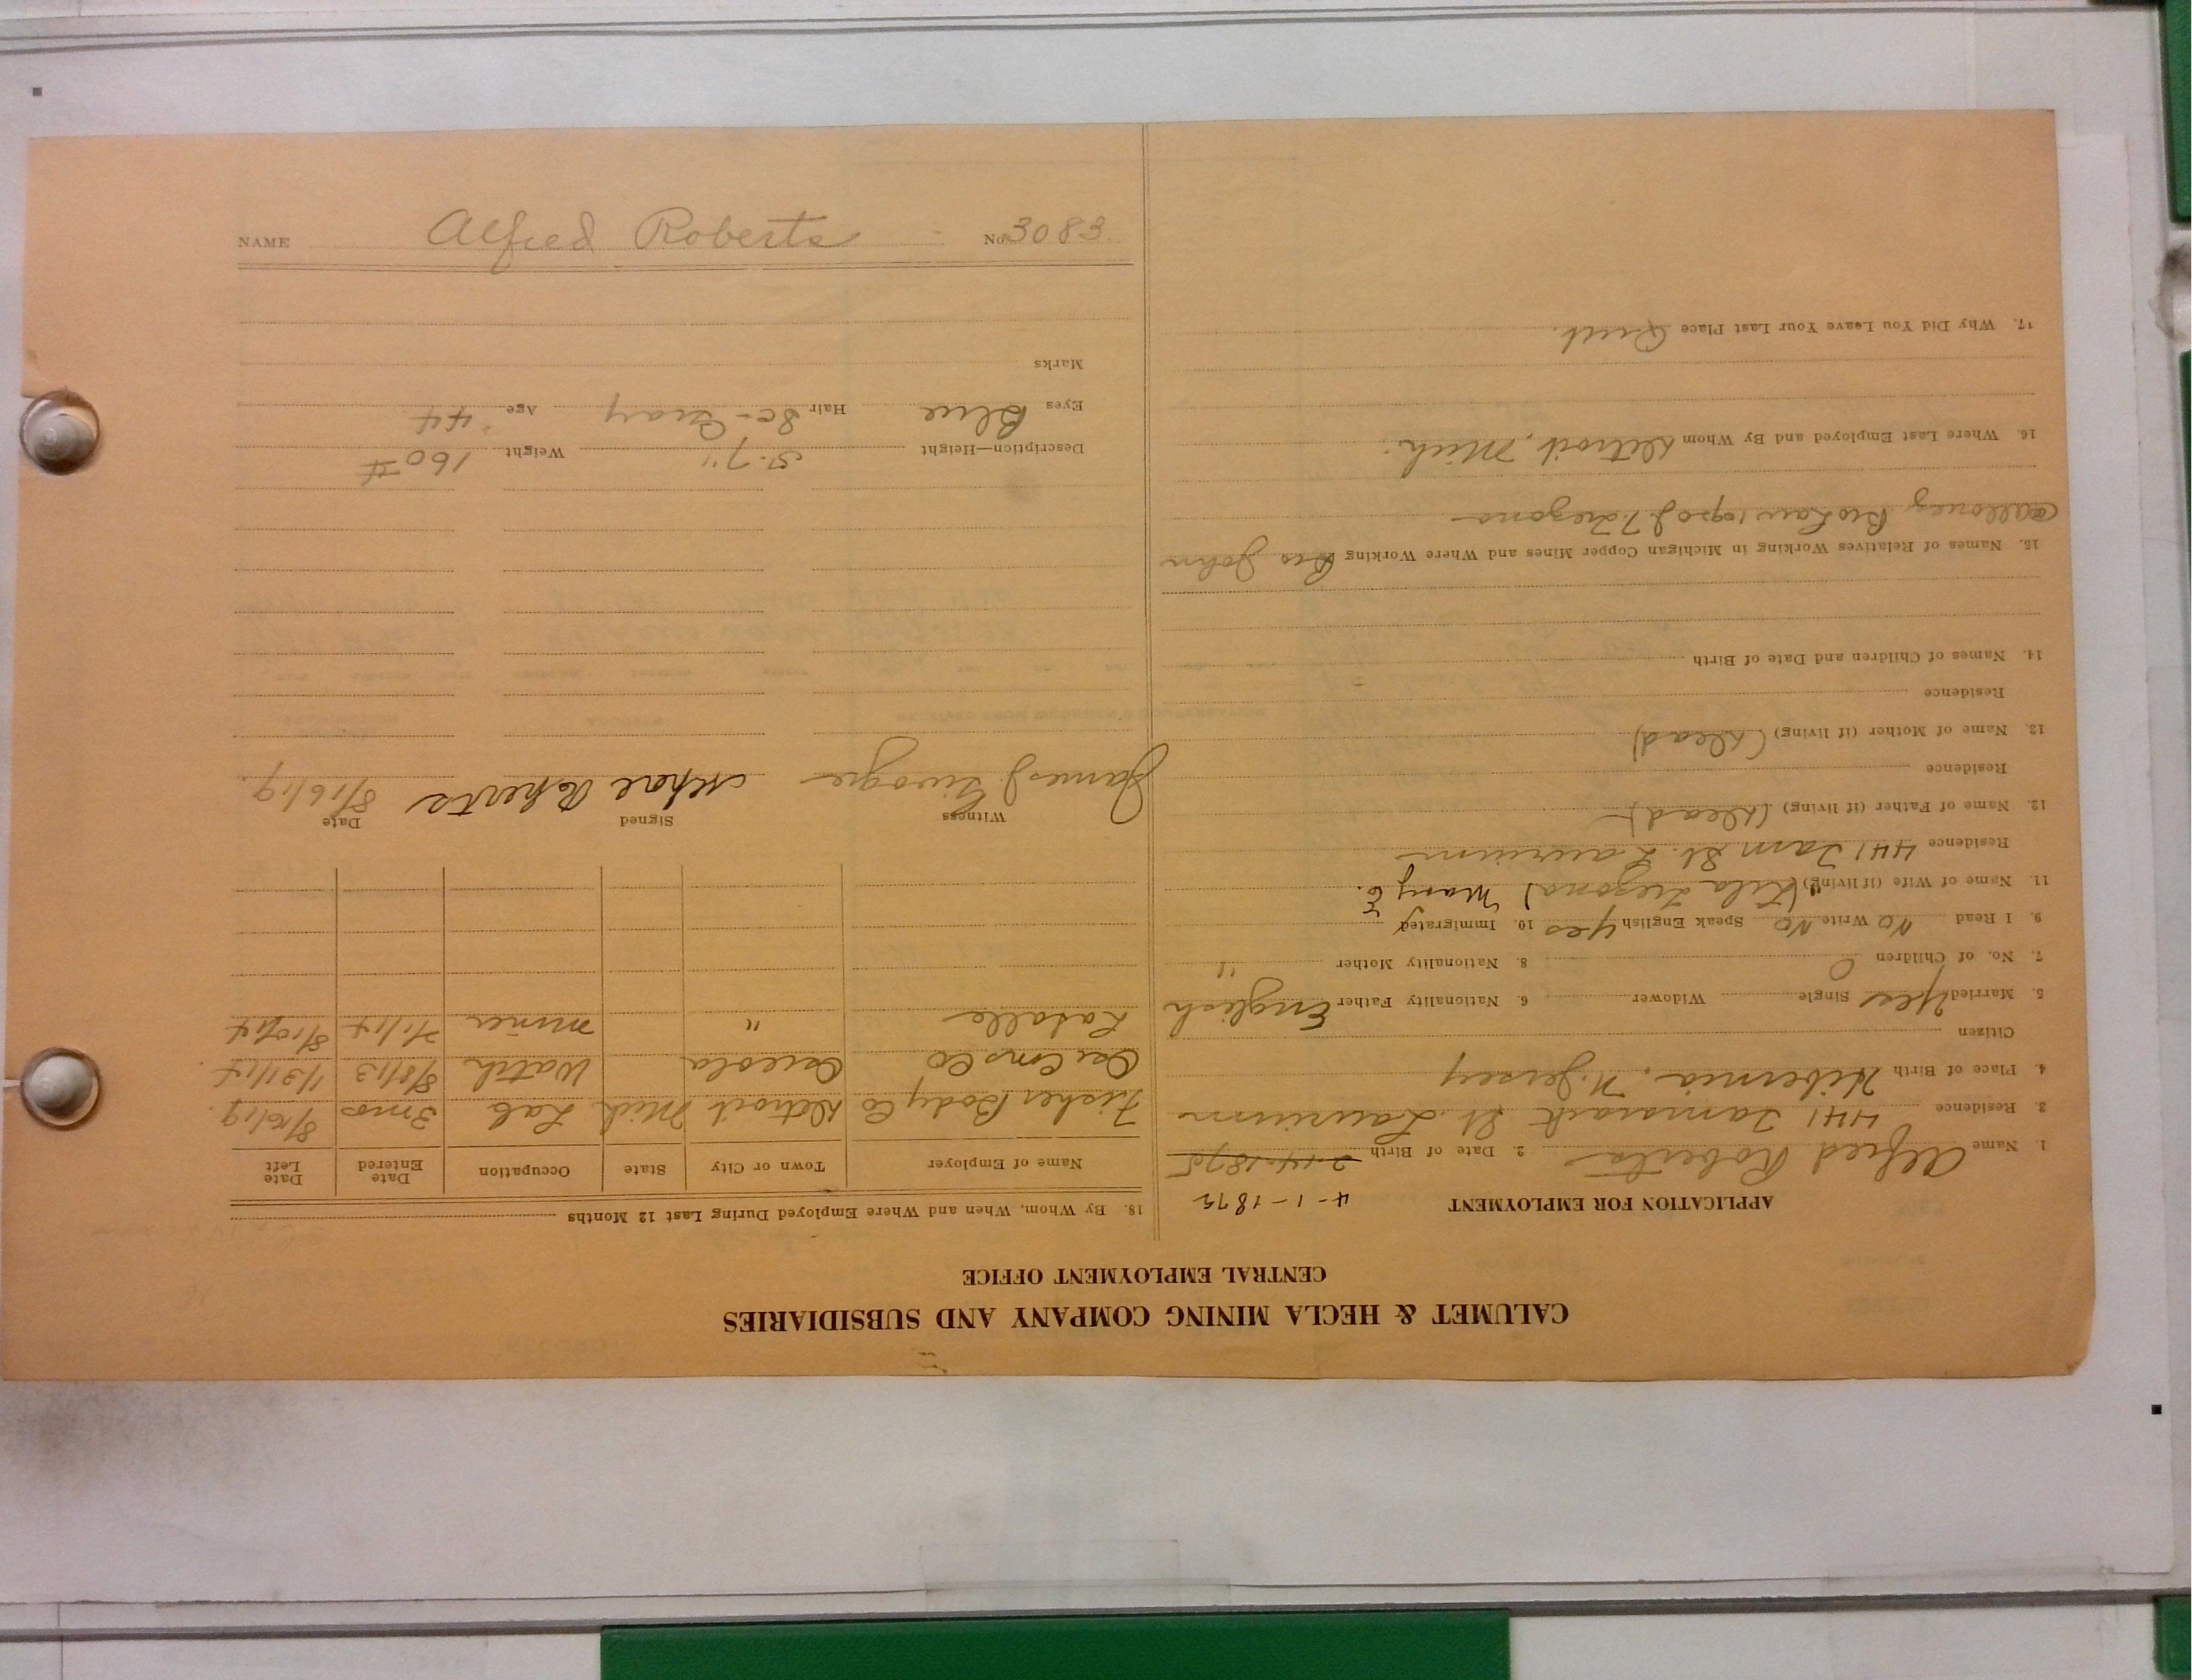 CALUMET & HECLA MINING COMPANY AND SUBSIDIARIES
CENTRAL EMPLOYMENT OFFICE
APPLICATION FOR EMPLOYMENT 4-1-1875
1. Name Alfred Roberts 2. Date of Birth 2-14-1875
3. Residence 441 Tamarack St. Laurium
4. Place of Birth Hibernia, N. Jersey
Citizen
5. Married Yes Single Widower 6. Nationality Father English
7. No. of Children 0 8. Nationality Mother "
9. I Read No Write No Speak English Yes 10. Immigrated
11. Name of Wife (if living) (Tregona) Mary E.
Residence 441 Tam St. Laurium
12. Name of Father (if living) (Dead)
Residence
13. Name of Mother (if living) (Dead)
Residence
14. Names of Children and Date of Birth
15. Names of Relatives Working in Michigan Copper Mines and Where Working Bro John
Allouez Bro Law Tregona
16. Where Last Employed and By Whom Detroit, Mich.
17. Why Did You Leave Your Last Place Quit.
18. By Whom, When and Where Employed During Last 12 Months
Name of Employer Town or City State Occupation Date Entered Date Left
Fisher Body Co Detroit Mich Lab 3 mos 8/16/19.
Osc Cons Co Osceola Watch 8/8/13 1/31/14
Lasalle " miner 7/1/14 8/10/14
Witness Signed Date
James J. Alfred Roberts 8/16/19.
Description—Height 5.7" Weight 160 #
Eyes Blue Hair Sc-Gray Age 44
Marks
NAME Alfred Roberts No. 3083